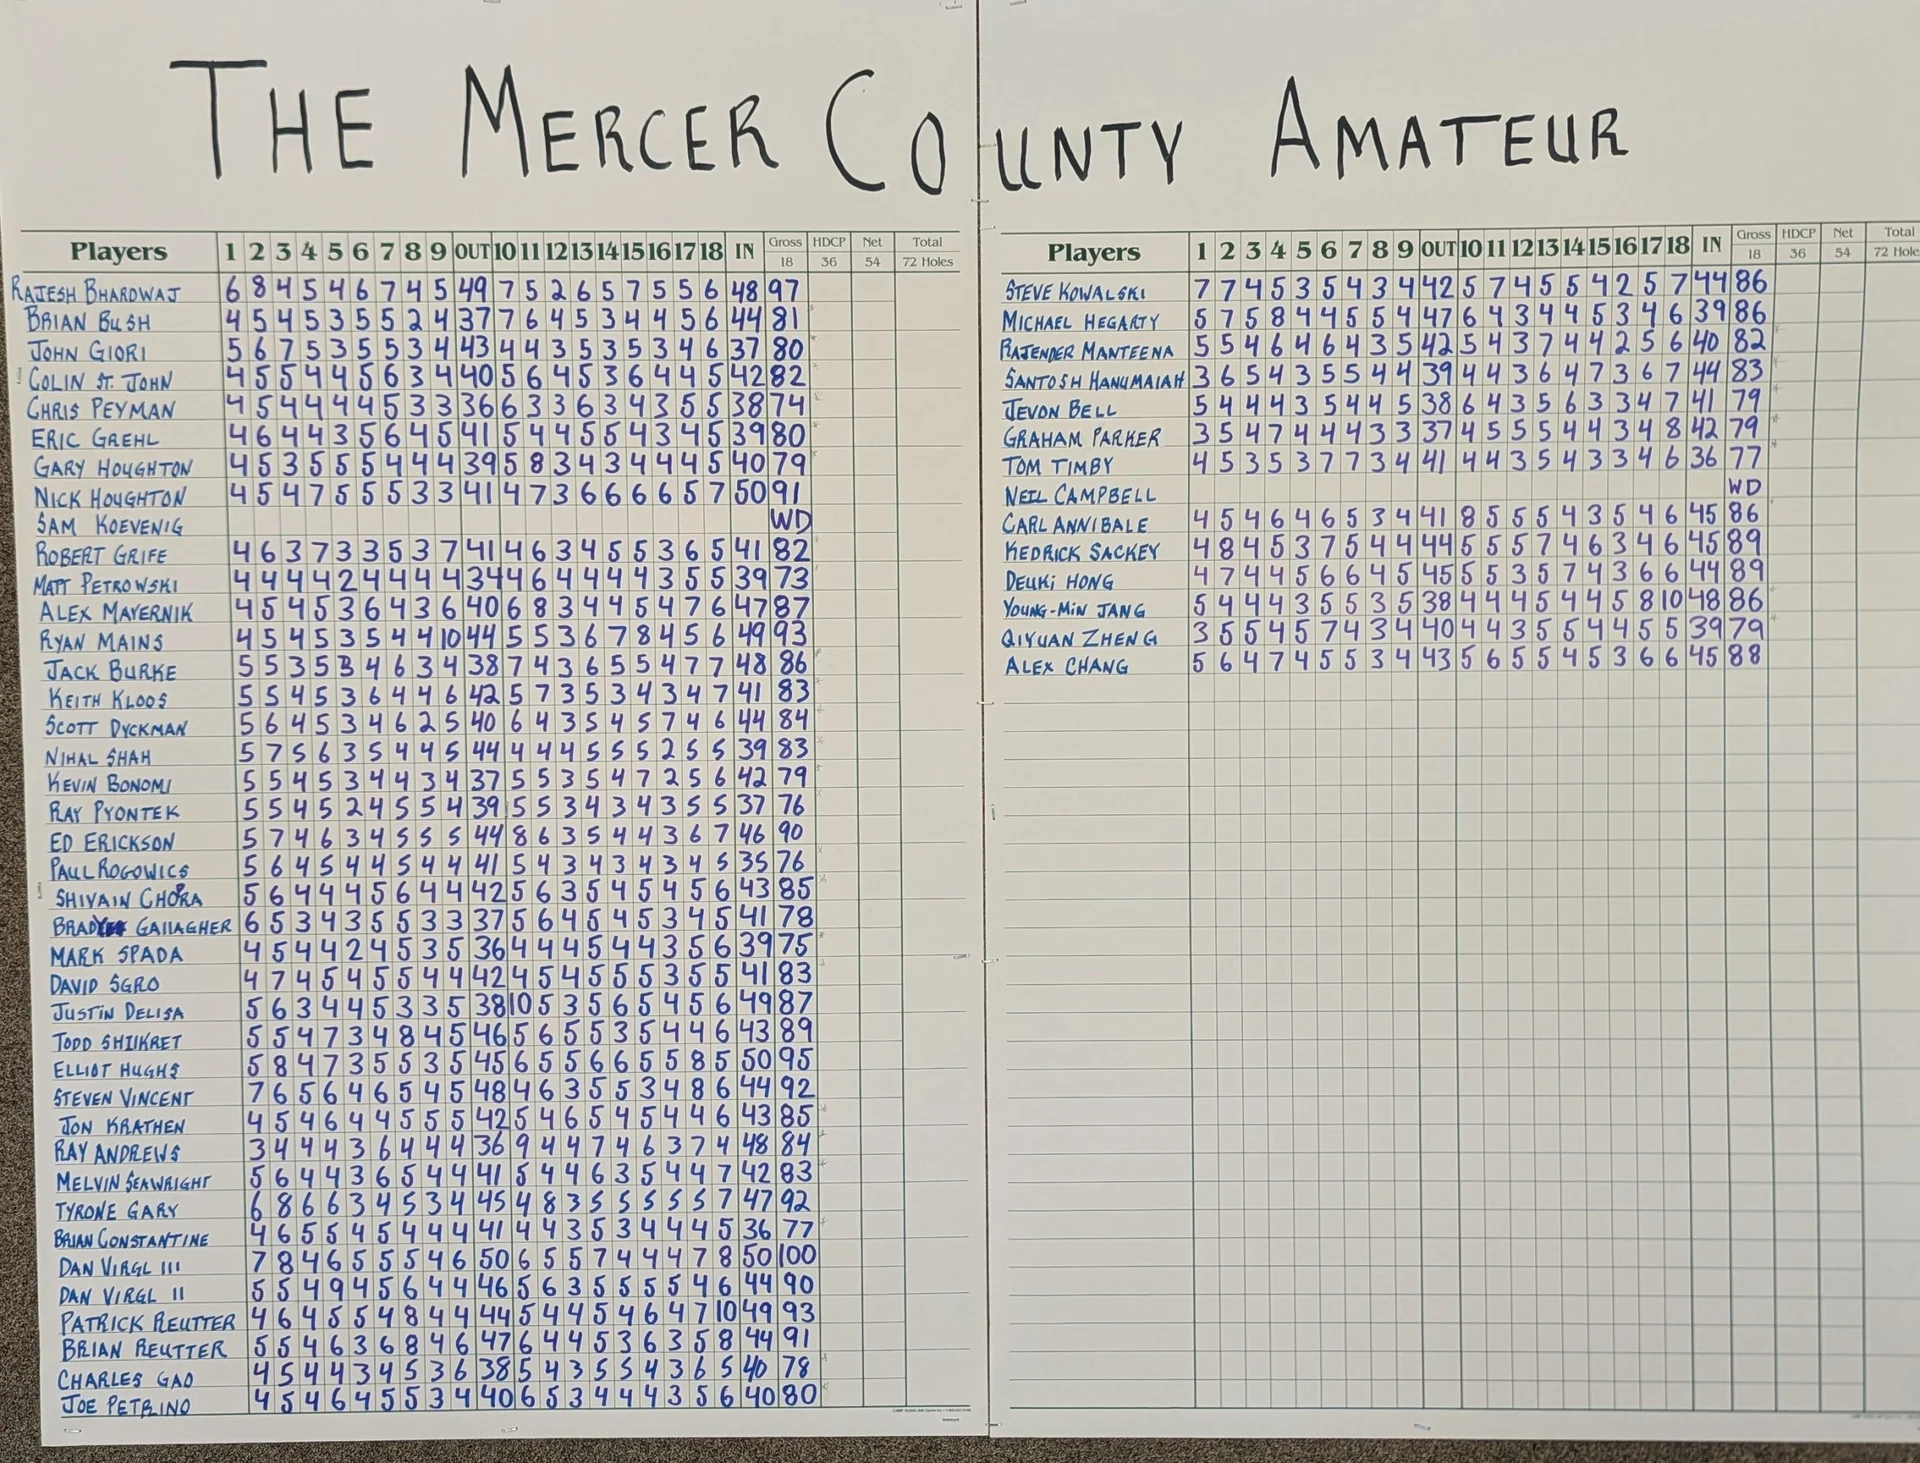 THE MERCER COUNTY AMATEUR
Players 1 2 3 4 5 6 7 8 9 OUT 10 11 12 13 14 15 16 17 18 IN Gross 18 HDCP 36 Net 54 Total 72 Holes
RAJESH BHARDWAJ 6 8 4 5 4 6 7 4 5 49 7 5 2 6 5 7 5 5 6 48 97
BRIAN BUSH 4 5 4 5 3 5 5 2 4 37 7 6 4 5 3 4 4 5 6 44 81
JOHN GIORI 5 6 7 5 3 5 5 3 4 43 4 4 3 5 3 5 3 4 6 37 80
COLIN ST. JOHN 4 5 5 4 4 5 6 3 4 40 5 6 4 5 3 6 4 4 5 42 82
CHRIS PEYMAN 4 5 4 4 4 4 5 3 3 36 6 3 3 6 3 4 3 5 5 38 74
ERIC GREHL 4 6 4 4 3 5 6 4 5 41 5 4 4 5 5 4 3 4 5 39 80
GARY HOUGHTON 4 5 3 5 5 5 4 4 4 39 5 8 3 4 3 4 4 4 5 40 79
NICK HOUGHTON 4 5 4 7 5 5 5 3 3 41 4 7 3 6 6 6 6 5 7 50 91
SAM KOEVENIG WD
ROBERT GRIFE 4 6 3 7 3 3 5 3 7 41 4 6 3 4 5 5 3 6 5 41 82
MATT PETROWSKI 4 4 4 4 2 4 4 4 4 34 4 6 4 4 4 4 3 5 5 39 73
ALEX MAYERNIK 4 5 4 5 3 6 4 3 6 40 6 8 3 4 4 5 4 7 6 47 87
RYAN MAINS 4 5 4 5 3 5 4 4 10 44 5 5 3 6 7 8 4 5 6 49 93
JACK BURKE 5 5 3 5 3 4 6 3 4 38 7 4 3 6 5 5 4 7 7 48 86
KEITH KLOOS 5 5 4 5 3 6 4 4 6 42 5 7 3 5 3 4 3 4 7 41 83
SCOTT DYCKMAN 5 6 4 5 3 4 6 2 5 40 6 4 3 5 4 5 7 4 6 44 84
NIHAL SHAH 5 7 5 6 3 5 4 4 5 44 4 4 4 5 5 5 2 5 5 39 83
KEVIN BONOMI 5 5 4 5 3 4 4 3 4 37 5 5 3 5 4 7 2 5 6 42 79
RAY PYONTEK 5 5 4 5 2 4 5 5 4 39 5 5 3 4 3 4 3 5 5 37 76
ED ERICKSON 5 7 4 6 3 4 5 5 5 44 8 6 3 5 4 4 3 6 7 46 90
PAUL ROGOWICS 5 6 4 5 4 4 5 4 4 41 5 4 3 4 3 4 3 4 5 35 76
SHIVAIN CHOPRA 5 6 4 4 4 5 6 4 4 42 5 6 3 5 4 5 4 5 6 43 85
BRADY GALLAGHER 6 5 3 4 3 5 5 3 3 37 5 6 4 5 4 5 3 4 5 41 78
MARK SPADA 4 5 4 4 2 4 5 3 5 36 4 4 4 5 4 4 3 5 6 39 75
DAVID SGRO 4 7 4 5 4 5 5 4 4 42 4 5 4 5 5 5 3 5 5 41 83
JUSTIN DELISA 5 6 3 4 4 5 3 3 5 38 10 5 3 5 6 5 4 5 6 49 87
TODD SHIIKRET 5 5 4 7 3 4 8 4 5 46 5 6 5 5 3 5 4 4 6 43 89
ELLIOT HUGHS 5 8 4 7 3 5 5 3 5 45 6 5 5 6 6 5 5 8 5 50 95
STEVEN VINCENT 7 6 5 6 4 6 5 4 5 48 4 6 3 5 5 3 4 8 6 44 92
JON KRATHEN 4 5 4 6 4 4 5 5 5 42 5 4 6 5 4 5 4 4 6 43 85
RAY ANDREWS 3 4 4 4 3 6 4 4 4 36 9 4 4 7 4 6 3 7 4 48 84
MELVIN SEAWRIGHT 5 6 4 4 3 6 5 4 4 41 5 4 4 6 3 5 4 4 7 42 83
TYRONE GARY 6 8 6 6 3 4 5 3 4 45 4 8 3 5 5 5 5 5 7 47 92
BRIAN CONSTANTINE 4 6 5 5 4 5 4 4 4 41 4 4 3 5 3 4 4 4 5 36 77
DAN VIRGL III 7 8 4 6 5 5 5 4 6 50 6 5 5 7 4 4 4 7 8 50 100
DAN VIRGL II 5 5 4 9 4 5 6 4 4 46 5 6 3 5 5 5 5 4 6 44 90
PATRICK REUTTER 4 6 4 5 5 4 8 4 4 44 5 4 4 5 4 6 4 7 10 49 93
BRIAN REUTTER 5 5 4 6 3 6 8 4 6 47 6 4 4 5 3 6 3 5 8 44 91
CHARLES GAO 4 5 4 4 3 4 5 3 6 38 5 4 3 5 5 4 3 6 5 40 78
JOE PETRINO 4 5 4 6 4 5 5 3 4 40 6 5 3 4 4 4 3 5 6 40 80
Players 1 2 3 4 5 6 7 8 9 OUT 10 11 12 13 14 15 16 17 18 IN Gross 18 HDCP 36 Net 54 Total 72 Hole
STEVE KOWALSKI 7 7 4 5 3 5 4 3 4 42 5 7 4 5 5 4 2 5 7 44 86
MICHAEL HEGARTY 5 7 5 8 4 4 5 5 4 47 6 4 3 4 4 5 3 4 6 39 86
RAJENDER MANTEENA 5 5 4 6 4 6 4 3 5 42 5 4 3 7 4 4 2 5 6 40 82
SANTOSH HANUMAIAH 3 6 5 4 3 5 5 4 4 39 4 4 3 6 4 7 3 6 7 44 83
JEVON BELL 5 4 4 4 3 5 4 4 5 38 6 4 3 5 6 3 3 4 7 41 79
GRAHAM PARKER 3 5 4 7 4 4 4 3 3 37 4 5 5 5 4 4 3 4 8 42 79
TOM TIMBY 4 5 3 5 3 7 7 3 4 41 4 4 3 5 4 3 3 4 6 36 77
NEIL CAMPBELL WD
CARL ANNIBALE 4 5 4 6 4 6 5 3 4 41 8 5 5 5 4 3 5 4 6 45 86
KEDRICK SACKEY 4 8 4 5 3 7 5 4 4 44 5 5 5 7 4 6 3 4 6 45 89
DEUKI HONG 4 7 4 4 5 6 6 4 5 45 5 5 3 5 7 4 3 6 6 44 89
YOUNG-MIN JANG 5 4 4 4 3 5 5 3 5 38 4 4 4 5 4 4 5 8 10 48 86
QIYUAN ZHENG 3 5 5 4 5 7 4 3 4 40 4 4 3 5 5 4 4 5 5 39 79
ALEX CHANG 5 6 4 7 4 5 5 3 4 43 5 6 5 5 4 5 3 6 6 45 88